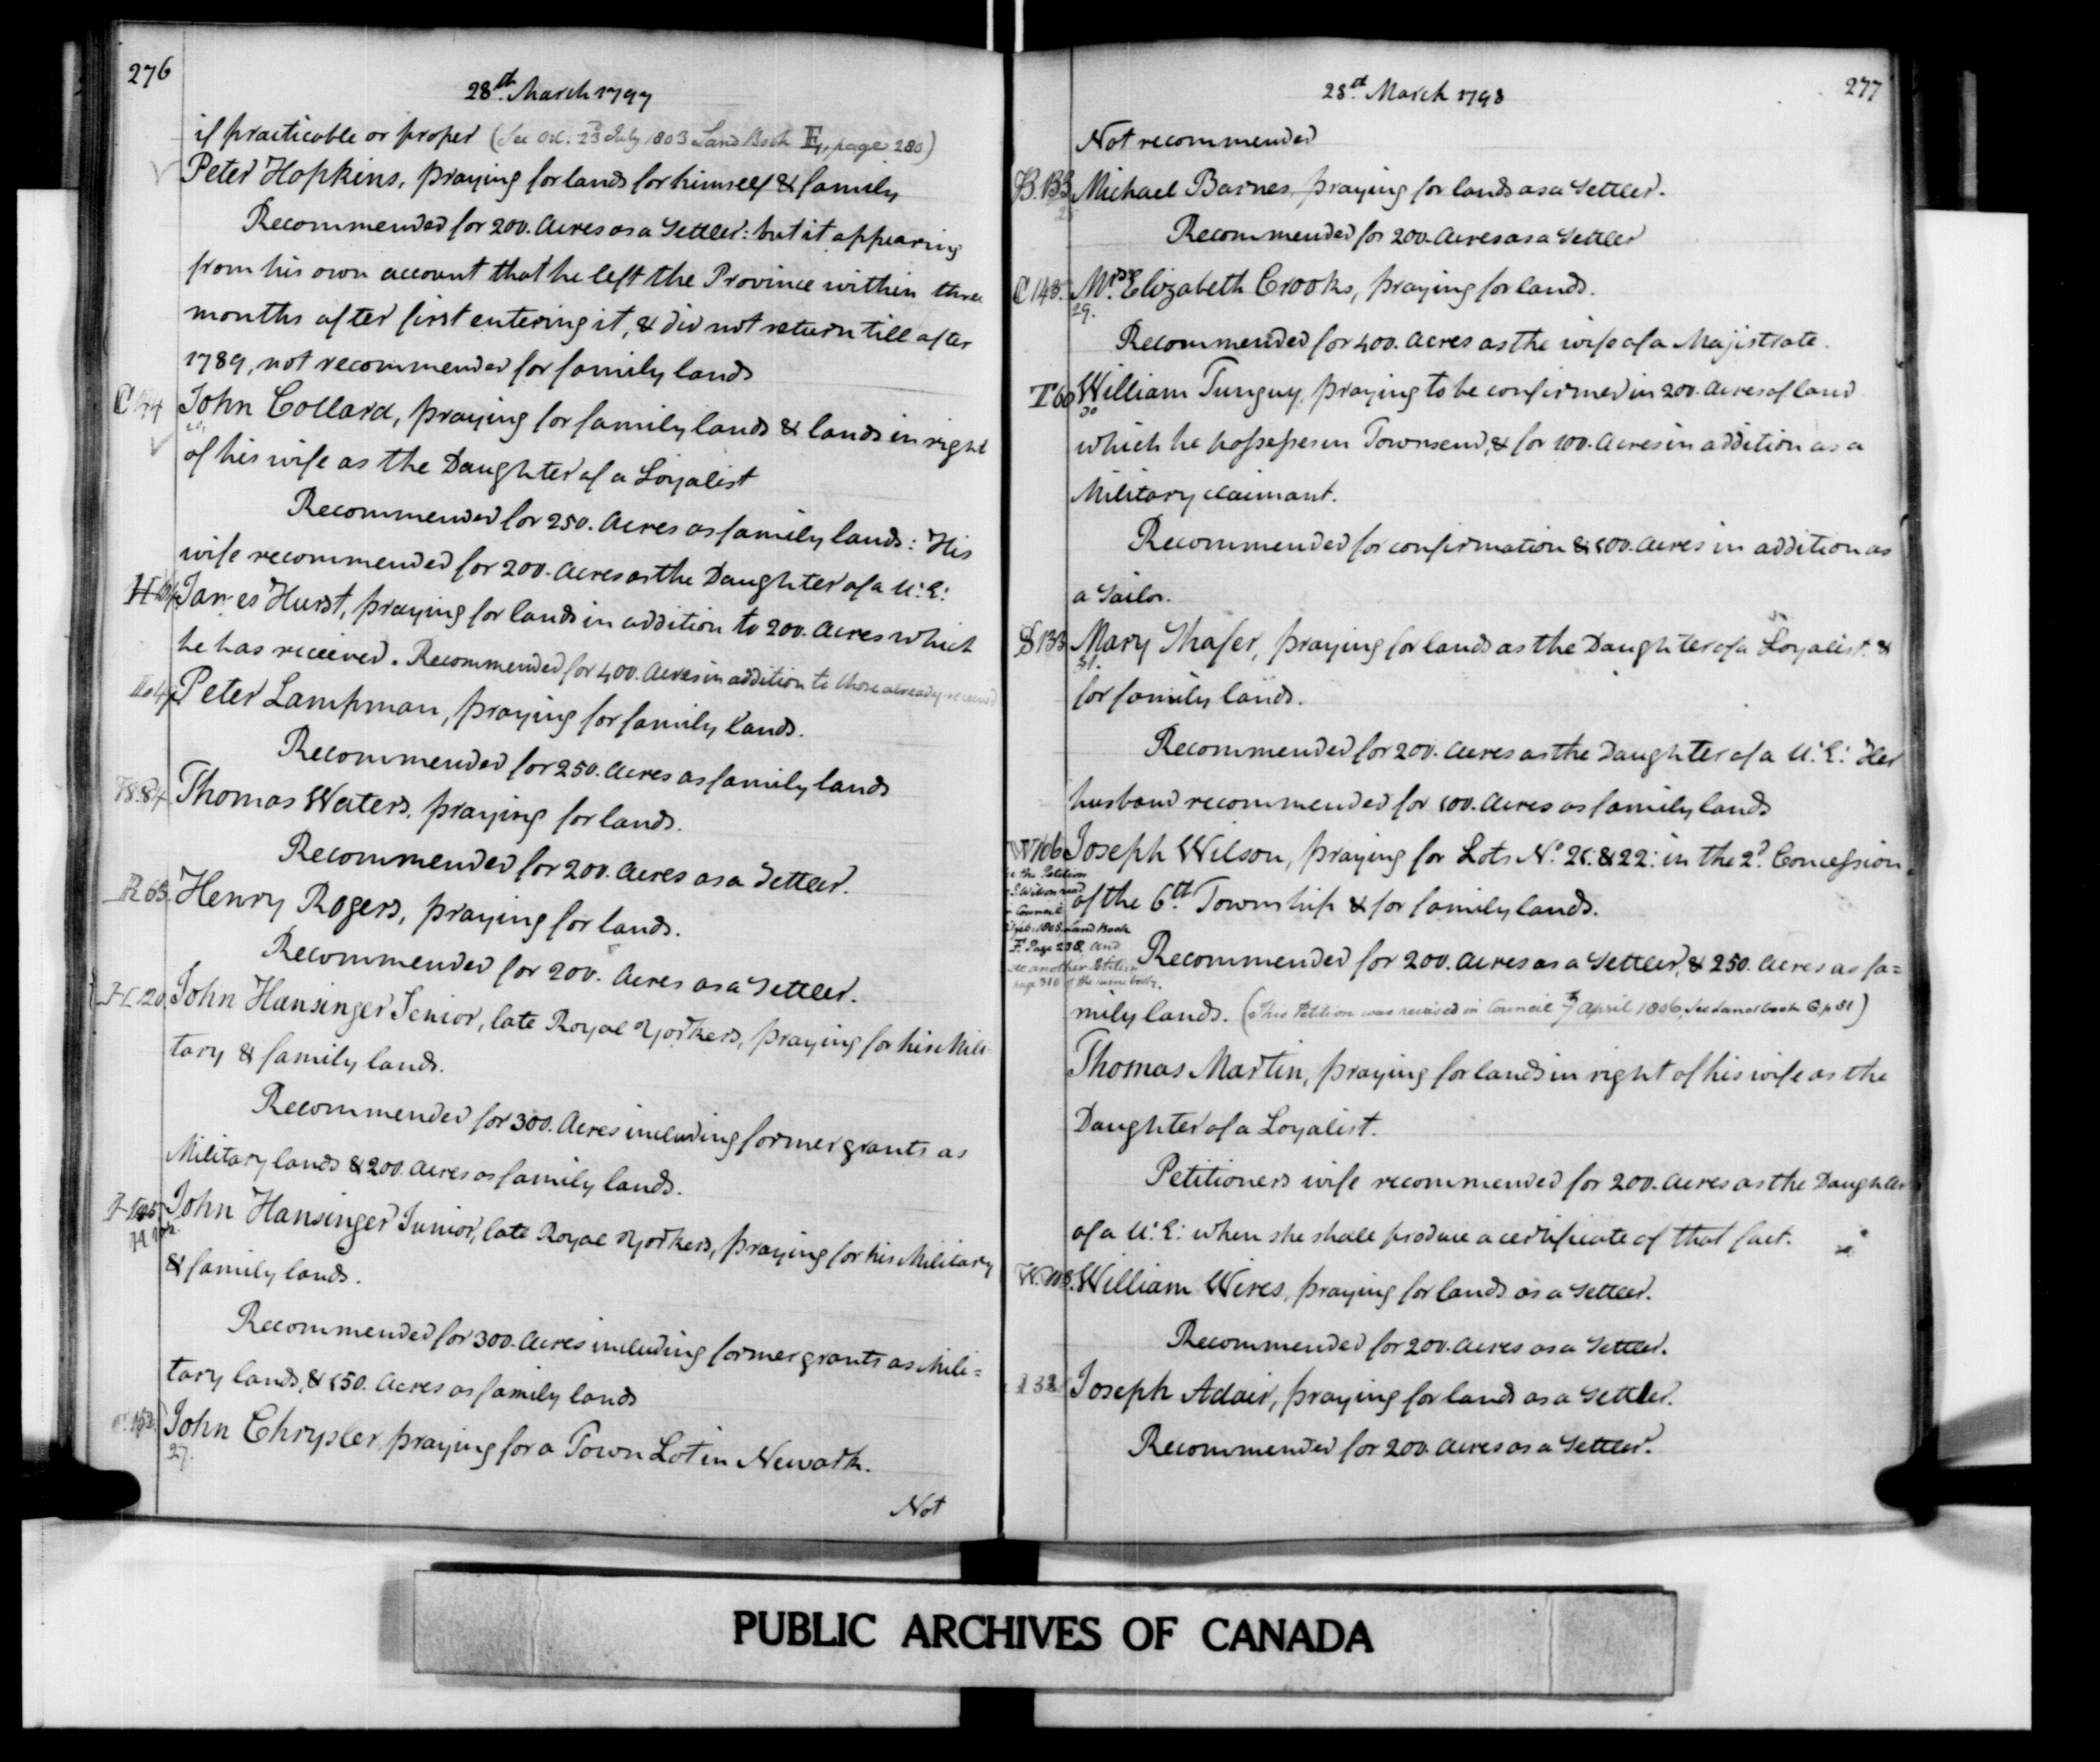 276
28th March 1797
if practicable or proper (See Od: 23d July 1803 Land Book E, page 280)
Peter Hopkins, praying for lands for himself & family
Recommended for 200. Acres as a Settler: but it appearing
from his own account that he left the Province within three
months after first entering it, & did not return till after
1789, not recommended for family lands
C 144 John Collard, praying for family lands & lands in right
of his wife as the Daughter of a Loyalist
Recommended for 250. Acres as family lands: His
wife recommended for 200. Acres as the Daughter of a U. E:
James Hurst, praying for lands in addition to 200. Acres which
he has received. Recommended for 400. Acres in addition to those already received
Peter Lampman, praying for family lands.
Recommended for 250. Acres as family lands
W. 84 Thomas Waters, praying for lands.
Recommended for 200. Acres as a Settler.
R 65. Henry Rogers, praying for lands.
Recommended for 200. Acres as a Settler.
H 20. John Hansinger Senior, late Royal Yorkers, praying for his Mili-
tary & family lands.
Recommended for 300. Acres including former grants as
Military lands & 200. Acres as family lands.
John Hansinger Junior, late Royal Yorkers, praying for his Military
& family lands.
Recommended for 300. Acres including former grants as Mili=
tary lands, & 150. Acres as family lands
John Chrysler, praying for a Town Lot in Newark.
27.
Not
277
28th March 1798
Not recommended
B. 133 Michael Barnes, praying for lands as a Settler.
Recommended for 200. Acres as a Settler
C 148. Mrs Elizabeth Crooks, praying for lands.
29.
Recommended for 400. Acres as the wife of a Magistrate.
T 60 William Tunguy, praying to be confirmed in 200. Acres of land
30
which he possesses in Townsend, & for 100. Acres in addition as a
Military claimant.
Recommended for confirmation & 100. Acres in addition as
a Sailor.
S 133 Mary Shafer, praying for lands as the Daughter of a Loyalist. &
31.
for family lands.
Recommended for 200. Acres as the Daughter of a U. E: Her
husband recommended for 100. Acres as family lands
W 106 Joseph Wilson, praying for Lots No. 21. & 22: in the 2d. Concession
of the 6th Township & for family lands.
the Petition
J. Wilson read
Council
Feb. 1805 Land Book
F. Page 238, and
see another Petition
page 310 of the same book.
Recommended for 200. Acres as a Settler, & 250. Acres as fa=
mily lands. (This Petition was revised in Council 7th April 1806, See Land book G p 51)
Thomas Martin, praying for lands in right of his wife as the
Daughter of a Loyalist.
Petitioners wife recommended for 200. Acres as the Daughter
of a U. E: when she shall produce a certificate of that fact.
W. 108. William Wires, praying for lands as a Settler.
Recommended for 200. Acres as a Settler.
Joseph Adair, praying for lands as a Settler.
Recommended for 200. Acres as a Settler.
PUBLIC ARCHIVES OF CANADA